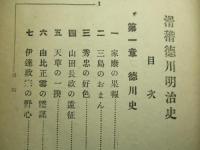 滑稽徳川明治史
目次
第一章 徳川史
一 家康の果報
二 三島のおまん
三 秀忠の好色
四 山田長政の遠征
五 天草の一揆
六 由比正雪の隠謀
七 伊達政宗の野心
1